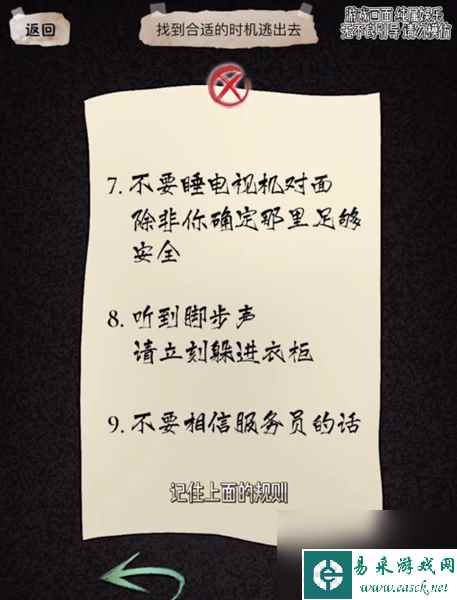 返回
找到合适的时机逃出去
游戏画面 纯属娱乐
无不良引导 请勿模仿
7. 不要睡电视机对面
除非你确定那里足够
安全
8. 听到脚步声
请立刻躲进衣柜
9. 不要相信服务员的话
记住上面的规则
易采游戏网
www.easck.net